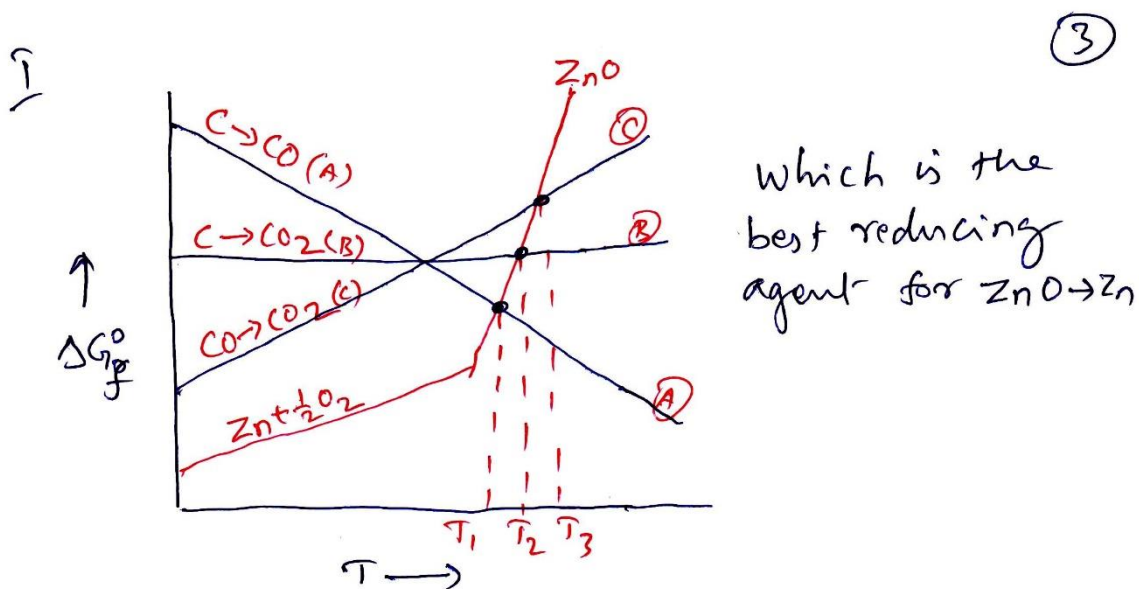 I
③
ZnO
C→CO (A)
Ⓒ
C→CO2 (B)
Ⓑ
CO→CO2 (C)
Zn + ½O2
Ⓐ
↑
ΔG°f
T1 T2 T3
T →
Which is the
best reducing
agent for ZnO→Zn